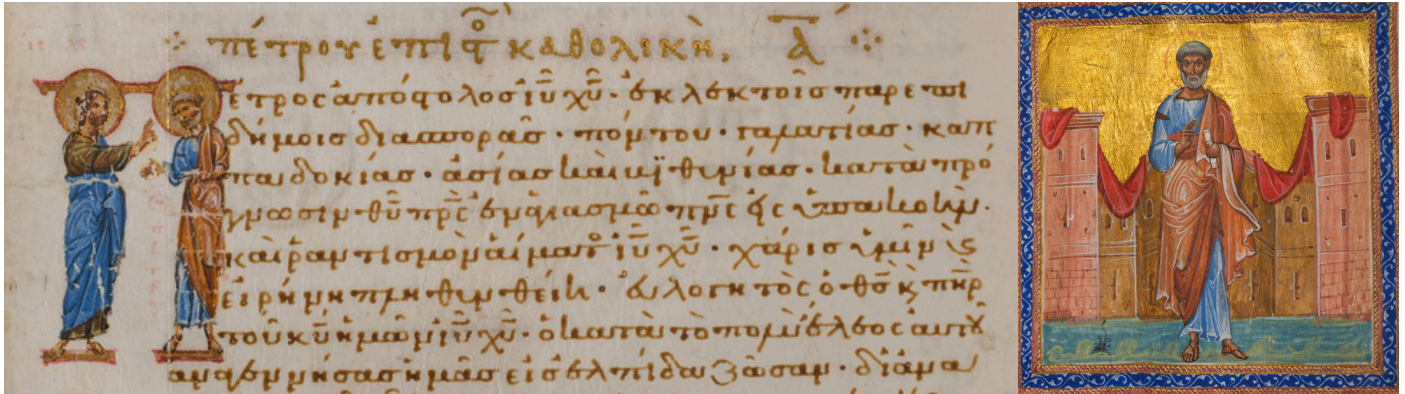 πέτρου ἐπιστο καθολικὴ, Α
Πέτρος ἀπόστολος ἰῦ χῦ· ἐκλεκτοῖς παρεπι
δήμοις διασπορᾶς· πόντου· γαλατίας· καπ
παδοκίας· ἀσίας καὶ βϊθυνίας· κατὰ πρό
γνωσιν θῦ πρ̅ς ἐν ἁγιασμῶ πν̅ς εἰς ὑπακοὴν·
καὶ ῥαντισμὸν αἵματο ἰῦ χῦ· χάρις ὑμῖν κς
εἰρήνη πληθυνθείη· εὐλογητὸς ὁ θς̅ κς πη̅ρ
τοῦ κῦ ἡμῶν ἰῦ χῦ· ὁ κατὰ τὸ πολὺ ἔλεος αὐτοῦ
ἀναγεννήσας ἡμᾶς εἰς ἐλπίδα ζῶσαν· δι ἀνα